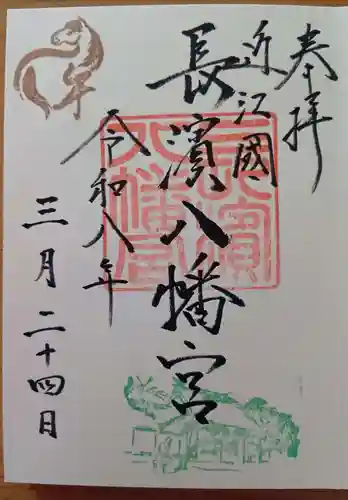 奉拝
近江國
長濱八幡宮
令和八年
三月二十四日
午
長濱
八幡宮